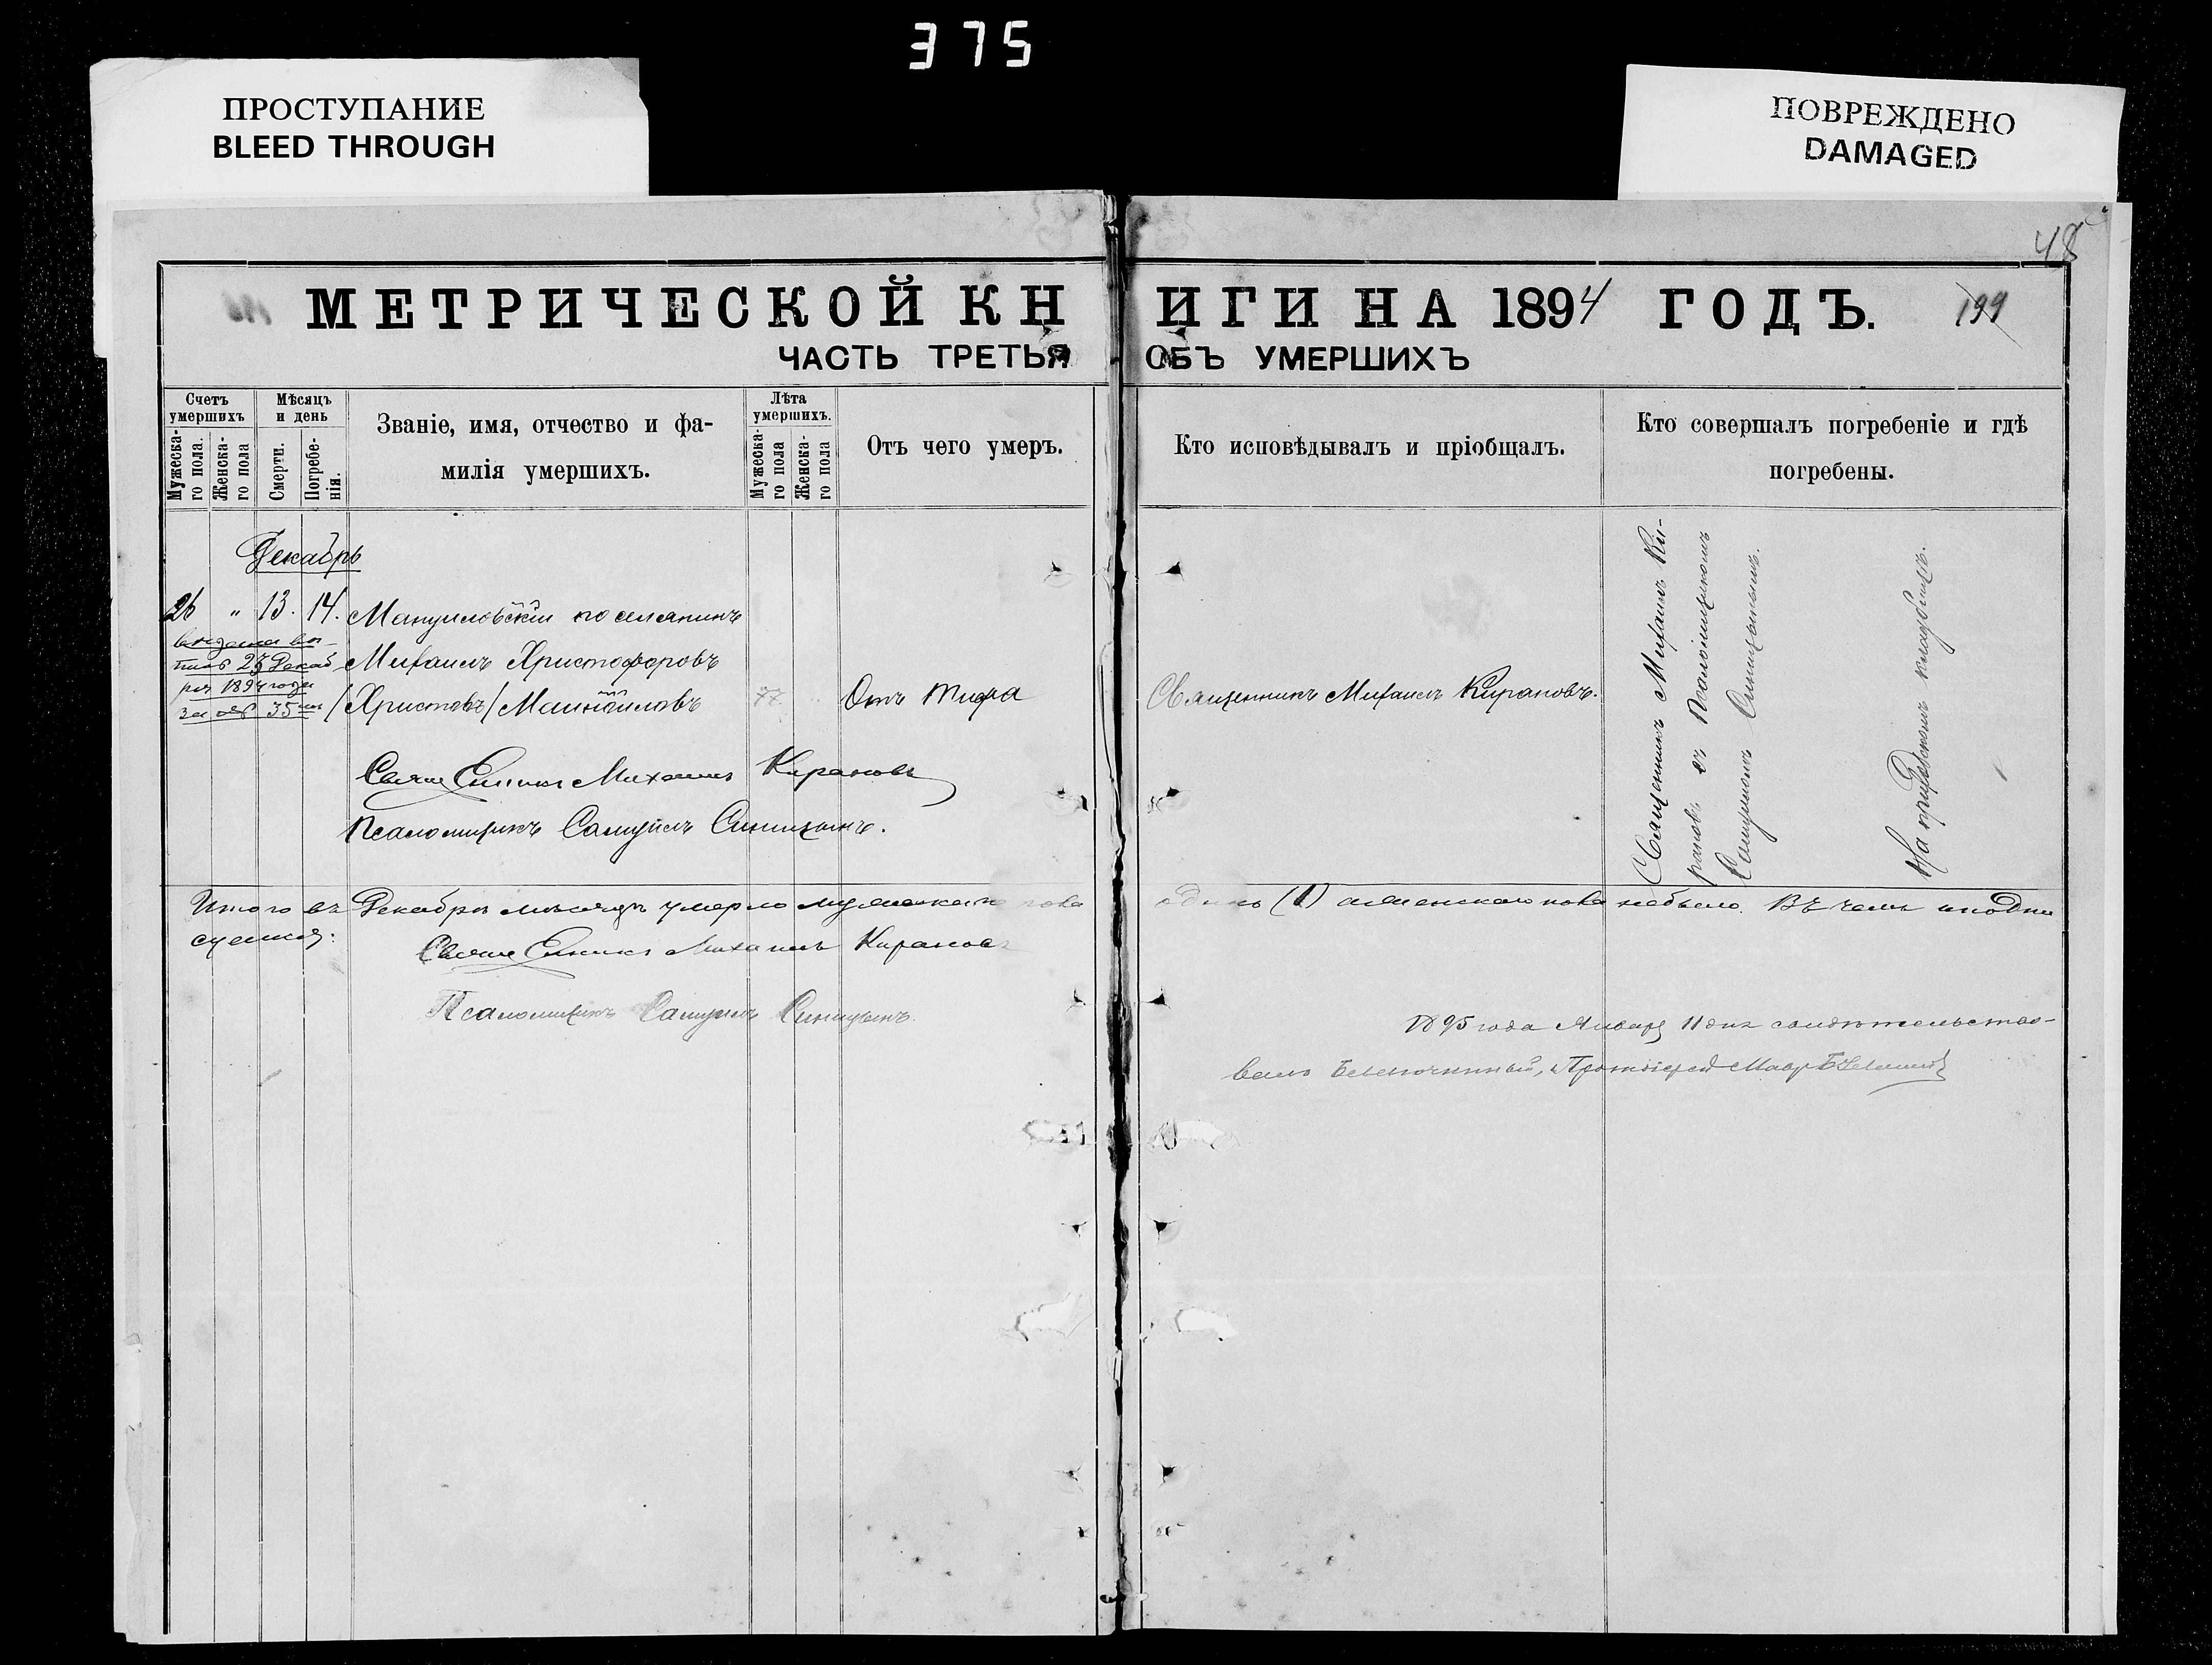 375
ПРОСТУПАНИЕ
BLEED THROUGH
ПОВРЕЖДЕНО
DAMAGED
48
МЕТРИЧЕСКОЙ КНИГИ НА 1894 ГОДЪ. 199
ЧАСТЬ ТРЕТЬЯ ОБЪ УМЕРШИХЪ
Счетъ умершихъ
Мужеска-го пола.
Женска-го пола
Мѣсяцъ и день
Смерти.
Погребе-нія.
Званіе, имя, отчество и фа-
милія умершихъ.
Лѣта умершихъ.
Мужеска-го пола
Женска-го пола
Отъ чего умеръ.
Кто исповѣдывалъ и пріобщалъ.
Кто совершалъ погребеніе и гдѣ
погребены.
Декабрь
26 " 13. 14. Мануиловскій поселянинъ
Михаилъ Христофоровъ
/Христовъ/
77
Отъ тифа
Священникъ Михаилъ Кирановъ.
23 Декаб
ря 1894 года
за № 35
Священникъ Михаилъ Ки-
рановъ съ Псаломщикомъ
Самуиломъ Синицынымъ.
На приходскомъ кладбищѣ.
Священникъ Михаилъ Кирановъ
Псаломщикъ Самуилъ Синицынъ.
Итого въ Декабрѣ мѣсяцѣ умерло мужескаго пола одинъ (1) а женскаго пола небыло. Въ чемъ и подпи
суемся:
Священникъ Михаилъ Кирановъ
Псаломщикъ Самуилъ Синицынъ.
1895 года Января 11 дня свидѣтельство-
валъ Благочинный, Протоіерей